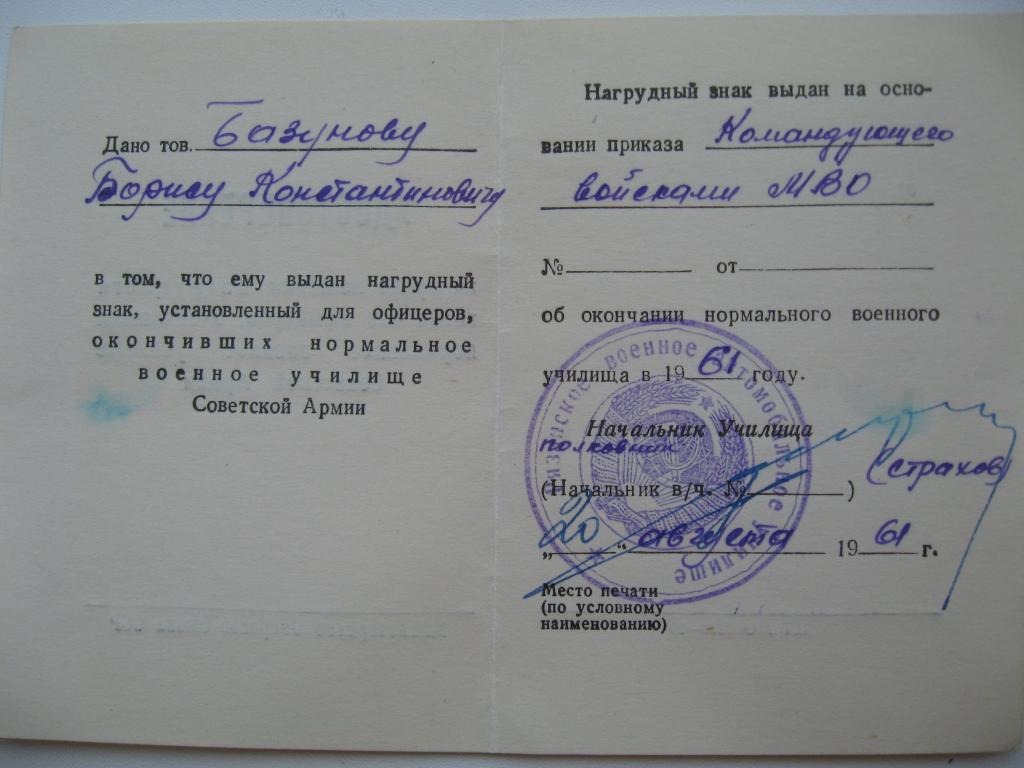 Дано тов. Базунову
Борису Константиновичу
в том, что ему выдан нагрудный
знак, установленный для офицеров,
окончивших нормальное
военное училище
Советской Армии
Нагрудный знак выдан на осно-
вании приказа Командующего
войсками МВО
№ от
об окончании нормального военного
училища в 19 61 году.
Начальник Училища
полковник
(Начальник в/ч. № ) (Страхов)
„20“ августа 19 61 г.
Место печати
(по условному
наименованию)
военное автомобильное училище